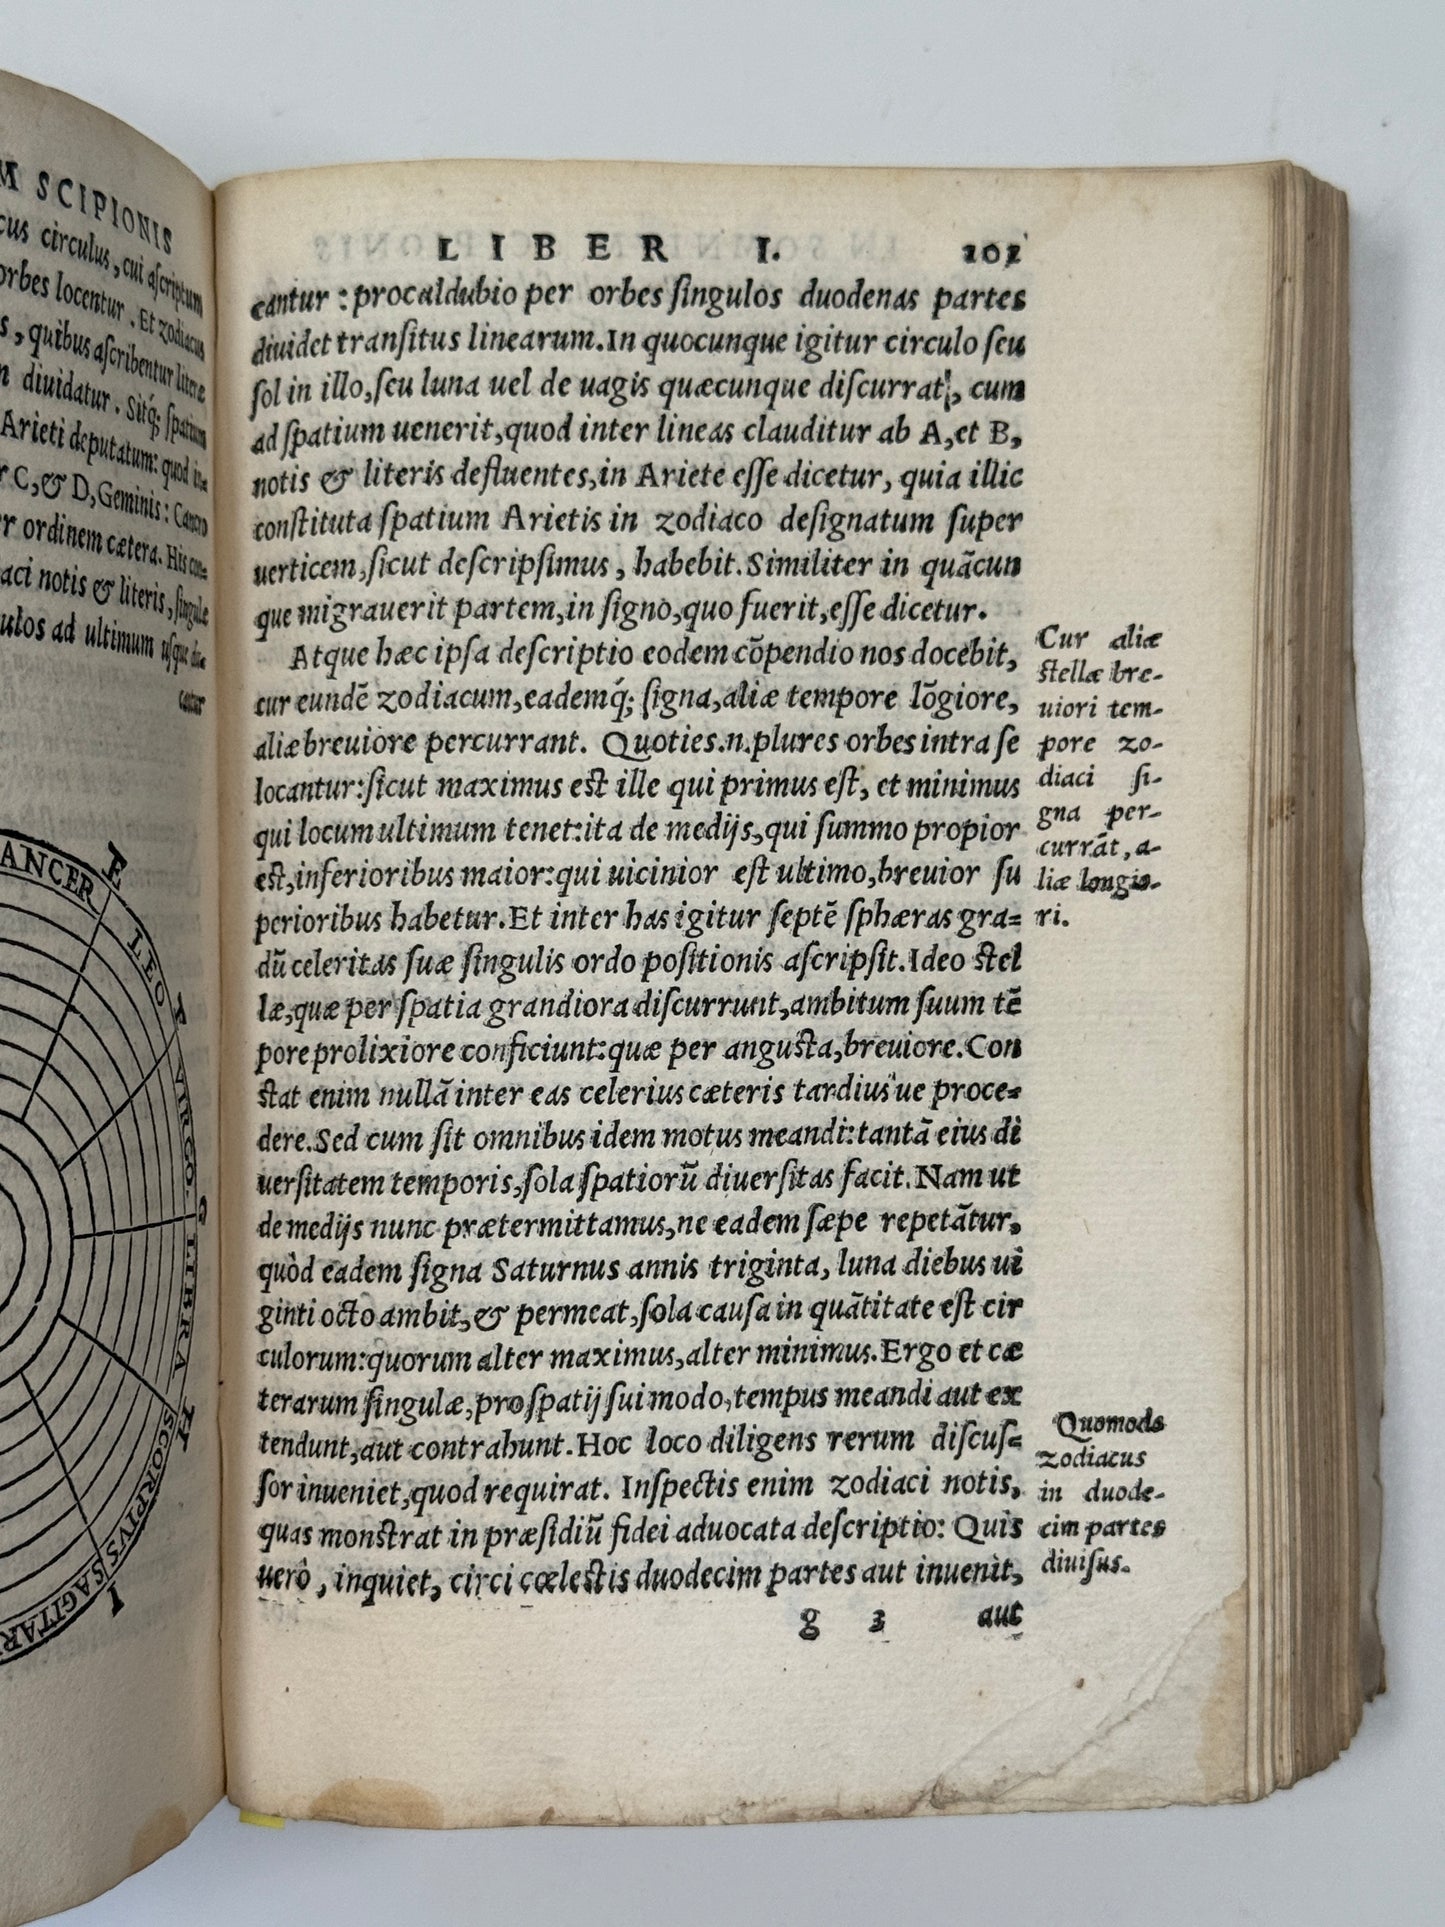 M SCIPIONIS
cus circulus, cui aſcriptum
orbes locentur. Et zodiacus
s, quibus aſcribentur literæ
diuidatur. Sitq́; ſpatium
Arieti deputatum: quod in-
r C, & D, Geminis: Cancro
r ordinem cætera. His con-
aci notis & literis, ſingulæ
ulos ad ultimum uſque di-
cantur
ANCER
E
LEO
VIRGO.
G
LIBRA
H
SCORPIVS
SAGITARI
I
LIBER I. 101
cantur : procaldubio per orbes ſingulos duodenas partes
diuidet tranſitus linearum. In quocunque igitur circulo ſeu
ſol in illo, ſeu luna uel de uagis quæcunque diſcurrat, cum
ad ſpatium uenerit, quod inter lineas clauditur ab A, et B,
notis & literis defluentes, in Ariete eſſe dicetur, quia illic
conſtituta ſpatium Arietis in zodiaco deſignatum ſuper
uerticem, ſicut deſcripſimus, habebit. Similiter in quãcun
que migrauerit partem, in ſigno, quo fuerit, eſſe dicetur.
Atque hæc ipſa deſcriptio eodem cõpendio nos docebit,
cur eundẽ zodiacum, eademq́; ſigna, aliæ tempore lõgiore,
aliæ breuiore percurrant. Quoties.n.plures orbes intra ſe
locantur: ſicut maximus eſt ille qui primus eſt, et minimus
qui locum ultimum tenet: ita de medijs, qui ſummo propior
eſt, inferioribus maior: qui uicinior eſt ultimo, breuior ſu
perioribus habetur. Et inter has igitur ſeptẽ ſphæras gra=
dũ celeritas ſuæ ſingulis ordo poſitionis aſcripſit. Ideo ſtel
læ, quæ per ſpatia grandiora diſcurrunt, ambitum ſuum tẽ
pore prolixiore conficiunt: quæ per anguſta, breuiore. Con
ſtat enim nullã inter eas celerius cæteris tardius ue proce=
dere. Sed cum ſit omnibus idem motus meandi: tantã eius di
uerſitatem temporis, ſola ſpatiorũ diuerſitas facit. Nam ut
de medijs nunc prætermittamus, ne eadem ſæpe repetãtur,
quòd eadem ſigna Saturnus annis triginta, luna diebus ui
ginti octo ambit, & permeat, ſola cauſa in quãtitate eſt cir
culorum: quorum alter maximus, alter minimus. Ergo et cæ
terarum ſingulæ, pro ſpatij ſui modo, tempus meandi aut ex
tendunt, aut contrahunt. Hoc loco diligens rerum diſcuſ=
ſor inueniet, quod requirat. Inſpectis enim zodiaci notis,
quas monſtrat in præſidiũ fidei aduocata deſcriptio: Quis
uerò, inquiet, circi cœleſtis duodecim partes aut inuenit,
g 3 aut
Cur aliæ
ſtellæ bre-
uiori tem-
pore zo-
diaci ſi-
gna per-
currãt, a-
liæ longio-
ri.
Quomodo
zodiacus
in duode-
cim partes
diuiſus.